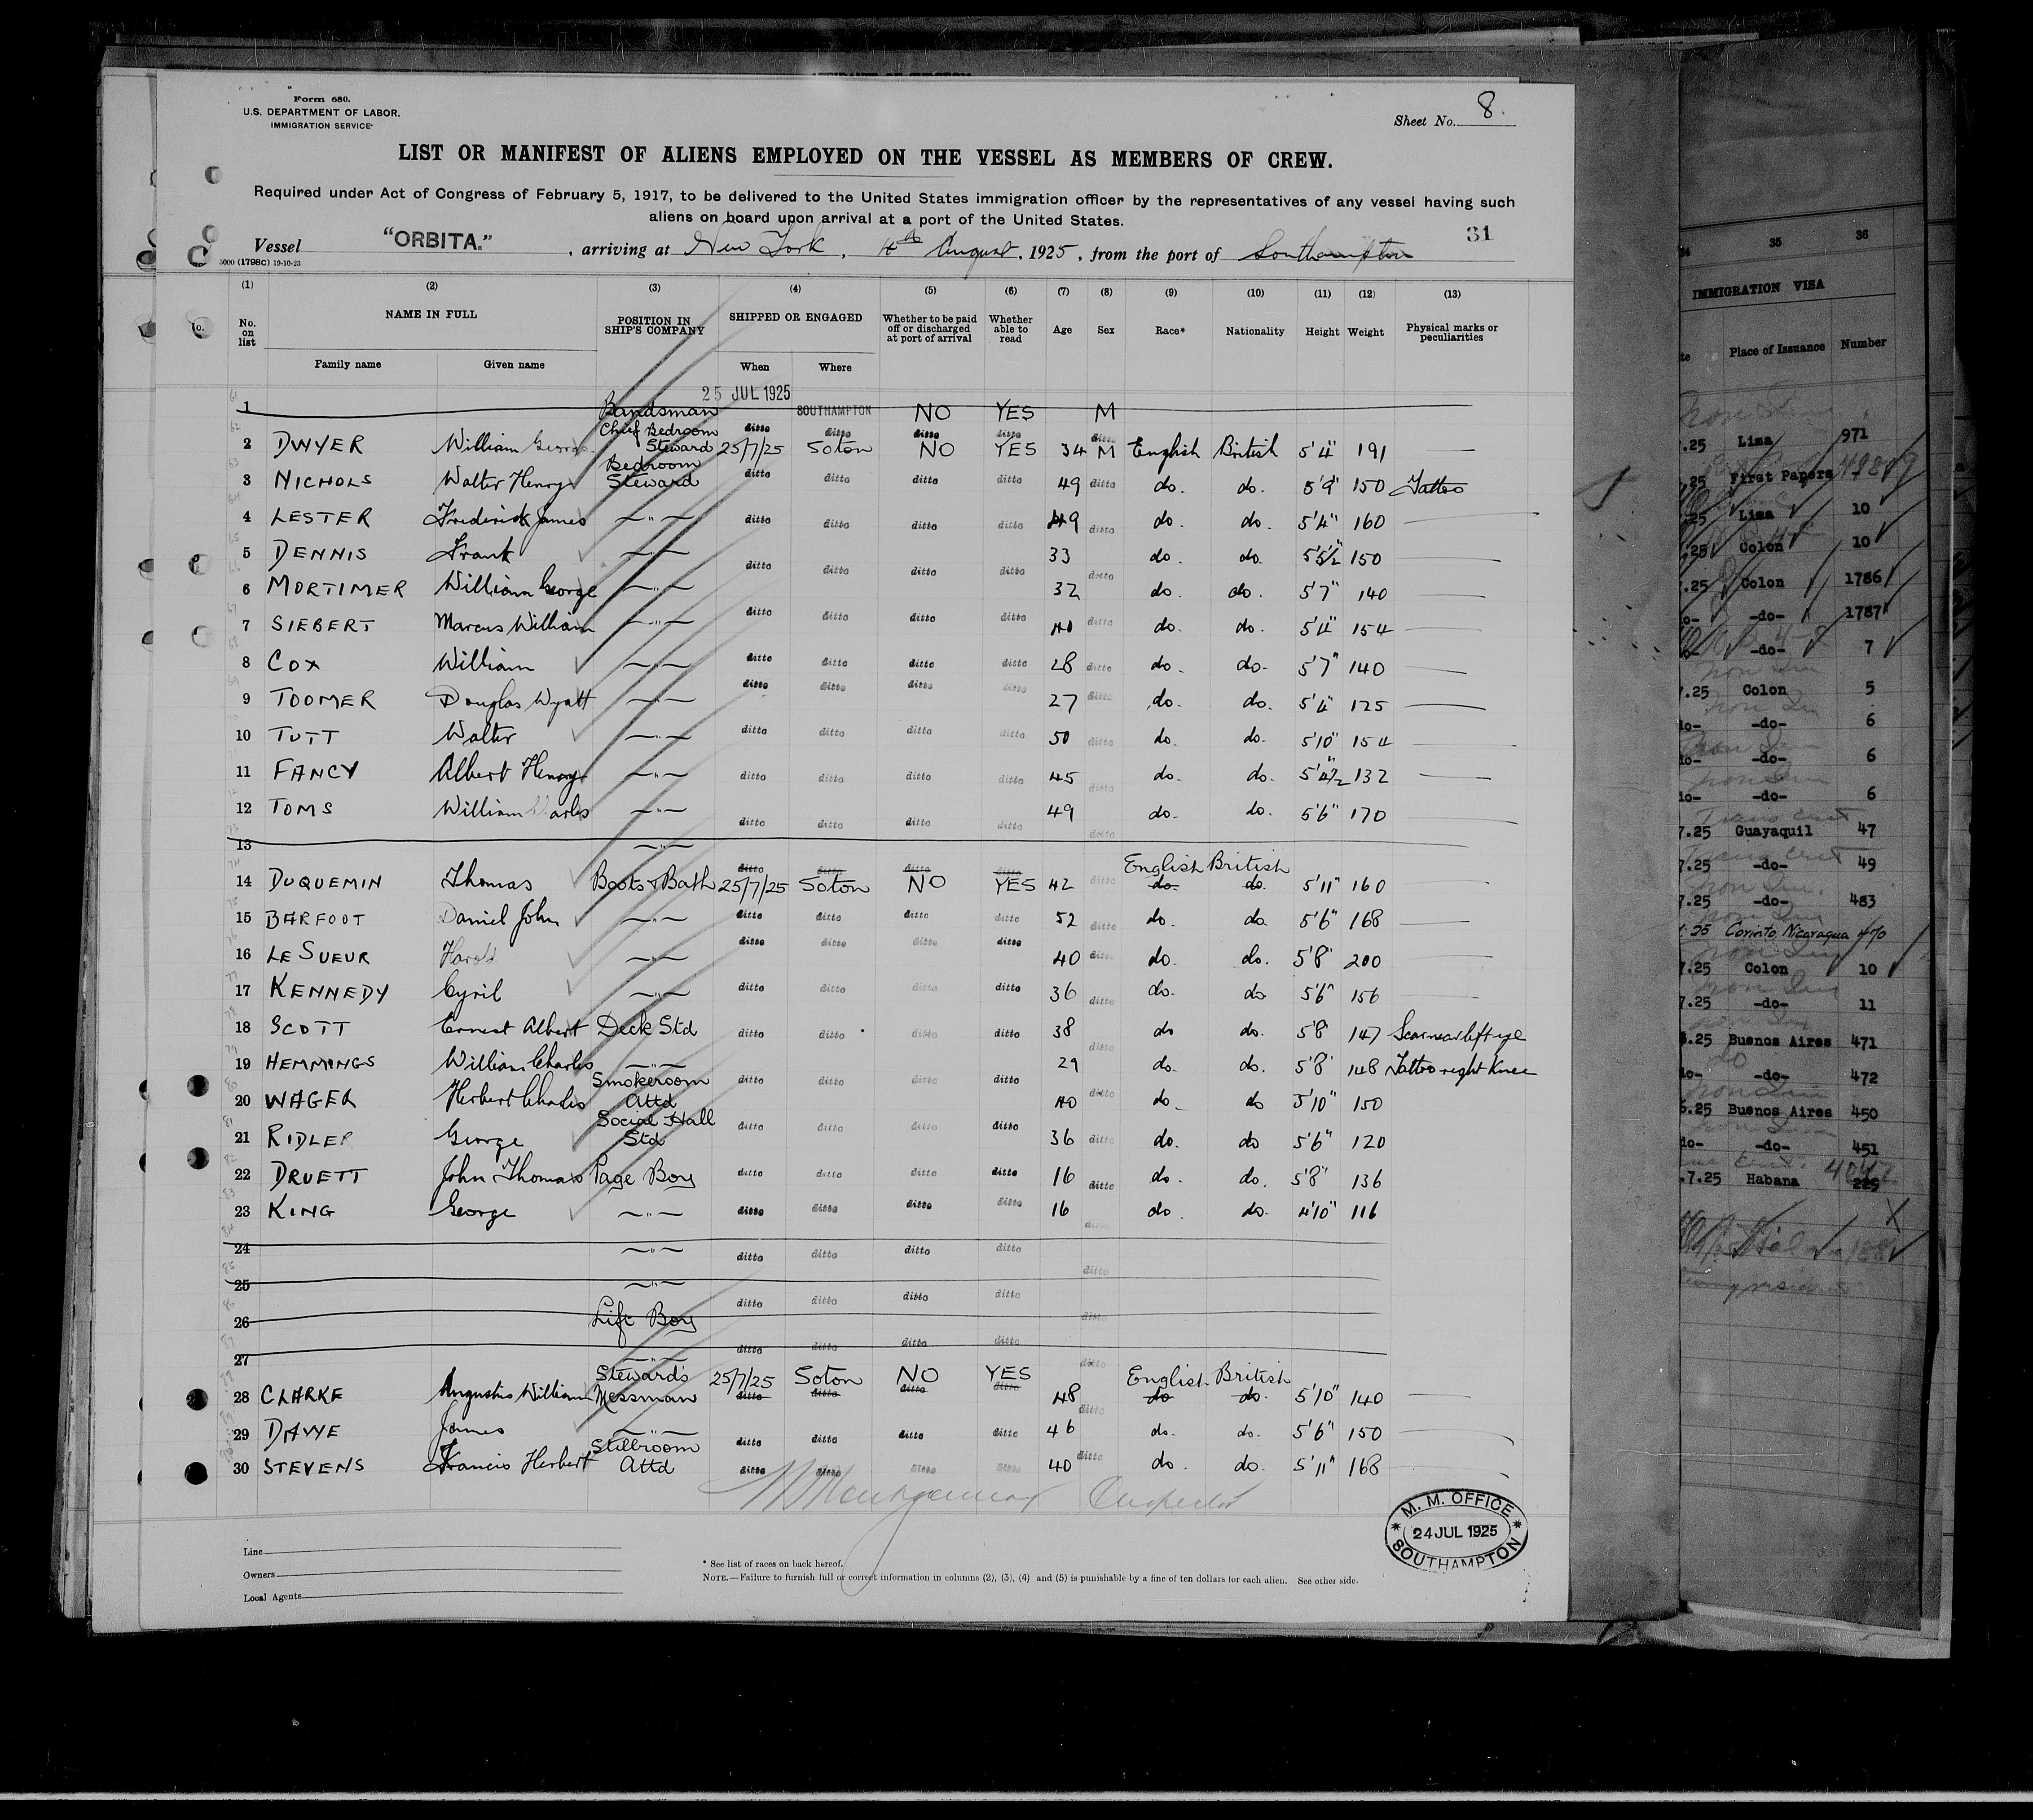 Form 680.
U.S. DEPARTMENT OF LABOR.
IMMIGRATION SERVICE
Sheet No. 8.
LIST OR MANIFEST OF ALIENS EMPLOYED ON THE VESSEL AS MEMBERS OF CREW.
Required under Act of Congress of February 5, 1917, to be delivered to the United States immigration officer by the representatives of any vessel having such
aliens on board upon arrival at a port of the United States.
31
Vessel "ORBITA." , arriving at New York , 4th August , 1925 , from the port of Southampton
5000 (1798C) 19-10-23
(1) (2) (3) (4) (5) (6) (7) (8) (9) (10) (11) (12) (13)
No. on list NAME IN FULL POSITION IN SHIP'S COMPANY SHIPPED OR ENGAGED Whether to be paid off or discharged at port of arrival Whether able to read Age Sex Race* Nationality Height Weight Physical marks or peculiarities
Family name Given name When Where
1 Bandsman 25 JUL 1925 SOUTHAMPTON NO YES M
2 DWYER William George Chief Bedroom Steward ditto 25/7/25 ditto Soton ditto NO ditto YES 34 ditto M English British 5'4" 191 —
3 NICHOLS Walter Henry Bedroom Steward ditto ditto ditto ditto 49 ditto do. do. 5'9" 150 Tattoo
4 LESTER Frederick James —"— ditto ditto ditto ditto 49 ditto do. do. 5'4" 160 —
5 DENNIS Frank —"— 33 do. do. 5'5½" 150 —
6 MORTIMER William George —"— ditto ditto ditto ditto 32 ditto do. do. 5'7" 140 —
7 SIEBERT Marcus William —"— ditto ditto ditto ditto 40 ditto do. do. 5'4" 154 —
8 COX William —"— ditto ditto ditto ditto 28 ditto do. do- 5'7" 140 —
9 TOOMER Douglas Wyatt —"— ditto ditto ditto ditto 27 ditto do. do. 5'4" 125 —
10 TUTT Walter —"— ditto ditto ditto ditto 50 ditto do. do- 5'10" 154 —
11 FANCY Albert Henry —"— ditto ditto ditto ditto 45 ditto do- do. 5'4½" 132 —
12 TOMS William Charles —"— ditto ditto ditto ditto 49 ditto do- do. 5'6" 170 —
13 —"—
14 DUQUEMIN Thomas Boots & Bath ditto 25/7/25 ditto Soton ditto NO ditto YES 42 ditto English do. British do. 5'11" 160 —
15 BARFOOT Daniel John —"— ditto ditto ditto ditto 52 ditto do. do. 5'6" 168 —
16 LE SUEUR Harold —"— ditto ditto ditto ditto 40 ditto do. do. 5'8" 200 —
17 KENNEDY Cyril —"— ditto ditto ditto ditto 36 ditto do. do 5'6" 156 —
18 SCOTT Ernest Albert Deck Std ditto ditto ditto ditto 38 ditto do do. 5'8 147 Scar near left eye
19 HEMMINGS William Charles —"— 29 do. do. 5'8 148 Tattoo right Knee
20 WAGER Herbert Charles Smokeroom Attd ditto ditto ditto ditto 40 ditto do. do 5'10" 150
21 RIDLER George Social Hall Std ditto ditto ditto ditto 36 ditto do. do 5'6" 120
22 DRUETT John Thomas Page Boy ditto ditto ditto ditto 16 ditto do. do. 5'8" 136
23 KING George —"— ditto ditto ditto ditto 16 ditto do. do. 4'10" 116
24 —"— ditto ditto ditto ditto
25 —"— ditto
26 Lift Boy ditto ditto ditto ditto ditto
27 —"— ditto ditto ditto ditto ditto
28 CLARKE Augustus William Steward's Messman 25/7/25 ditto Soton ditto NO ditto YES ditto 48 ditto English do British do. 5'10" 140 —
29 DAWE James —"— ditto ditto ditto ditto 46 do. do. 5'6" 150 —
30 STEVENS Francis Herbert Stillroom Attd ditto ditto ditto ditto 40 ditto do. do. 5'11" 168
Inspector
M. M. OFFICE
24 JUL 1925
SOUTHAMPTON
Line
Owners
Local Agents
* See list of races on back hereof.
NOTE.—Failure to furnish full or correct information in columns (2), (3), (4) and (5) is punishable by a fine of ten dollars for each alien. See other side.
35 36
IMMIGRATION VISA
Place of Issuance Number
.25 Lima 971
.25 First Papers 49819
.25 Lima 10
.25 Colon 10
.25 Colon 1786
-do- 1787
-do- 7
7.25 Colon 5
-do- 6
-do- 6
-do- 6
7.25 Guayaquil 47
7.25 -do- 49
7.25 -do- 483
.25 Corinto, Nicaragua 470
7.25 Colon 10
7.25 -do- 11
.25 Buenos Aires 471
-do- 472
.25 Buenos Aires 450
-do- 451
.7.25 Habana